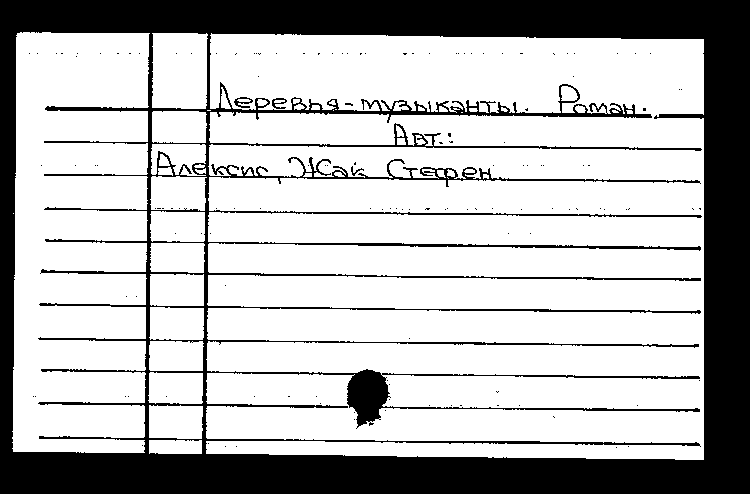 Деревья-музыканты. Роман.
Авт.:
Алексис, Жак Стефен.